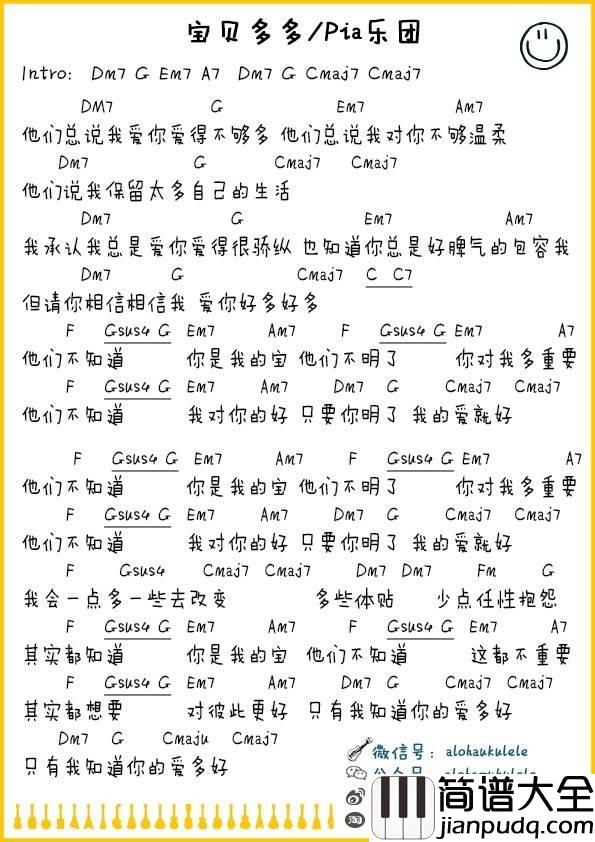 宝贝多多/Pia乐团
Intro: Dm7 G Em7 A7 Dm7 G Cmaj7 Cmaj7
DM7 G Em7 Am7
他们总说我爱你爱得不够多 他们总说我对你不够温柔
Dm7 G Cmaj7 Cmaj7
他们说我保留太多自己的生活
Dm7 G Em7 Am7
我承认我总是爱你爱得很骄纵 也知道你总是好脾气的包容我
Dm7 G Cmaj7 C C7
但请你相信相信我 爱你好多好多
F Gsus4 G Em7 Am7 F Gsus4 G Em7 A7
他们不知道 你是我的宝 他们不明了 你对我多重要
F Gsus4 G Em7 Am7 Dm7 G Cmaj7 Cmaj7
他们不知道 我对你的好 只要你明了 我的爱就好
F Gsus4 G Em7 Am7 F Gsus4 G Em7 A7
他们不知道 你是我的宝 他们不明了 你对我多重要
F Gsus4 G Em7 Am7 Dm7 G Cmaj7 Cmaj7
他们不知道 我对你的好 只要你明了 我的爱就好
F Gsus4 Cmaj7 Cmaj7 Dm7 Dm7 Fm G
我会一点多一些去改变 多些体贴 少点任性抱怨
F Gsus4 G Em7 Am7 F Gsus4 G Em7 A7
其实都知道 你是我的宝 他们不知道 这都不重要
F Gsus4 G Em7 Am7 Dm7 G Cmaj7 Cmaj7
其实都想要 对彼此更好 只有我知道你的爱多好
Dm7 G Cmaju Cmaj7
只有我知道你的爱多好
微信号: alohaukulele
淘
简谱大全
jianpudq.com